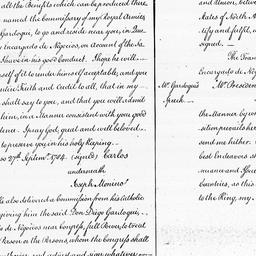 all the Benefits which can be produced there
named the commissary of my Royal armies
Gardoqui, to go and reside near you, in Qua
Encargado de Negocios, on Account of the Sa
I have in his good conduct. I hope he will
self of it to render himself acceptable; and you
entire Faith and Credit to all, that in my
shall say to you, and that you will admit
him, in a Manner consistent with your good
dence. I pray God, great and well beloved
to preserve you in his holy Keeping.
27th Septemr. 1784. (signed) Carlos
underneath
Joseph Monino
He also delivered a Commission from his Catholic
giving him the said Don Diego Gardoqui,
de Negocios near Congress, full Power, to treat
Person or the Persons, whom the Congress shall
and understand
and union,
States of North A
ify and fulfil,
signed
The Tran
Encargado de Nego
Mr. Gardoqui's
Speech
Mr. President
the Manner by w
sition persuades h
send me hither.
best Endeavors s
nuance and
Countries, as this
to the King, my